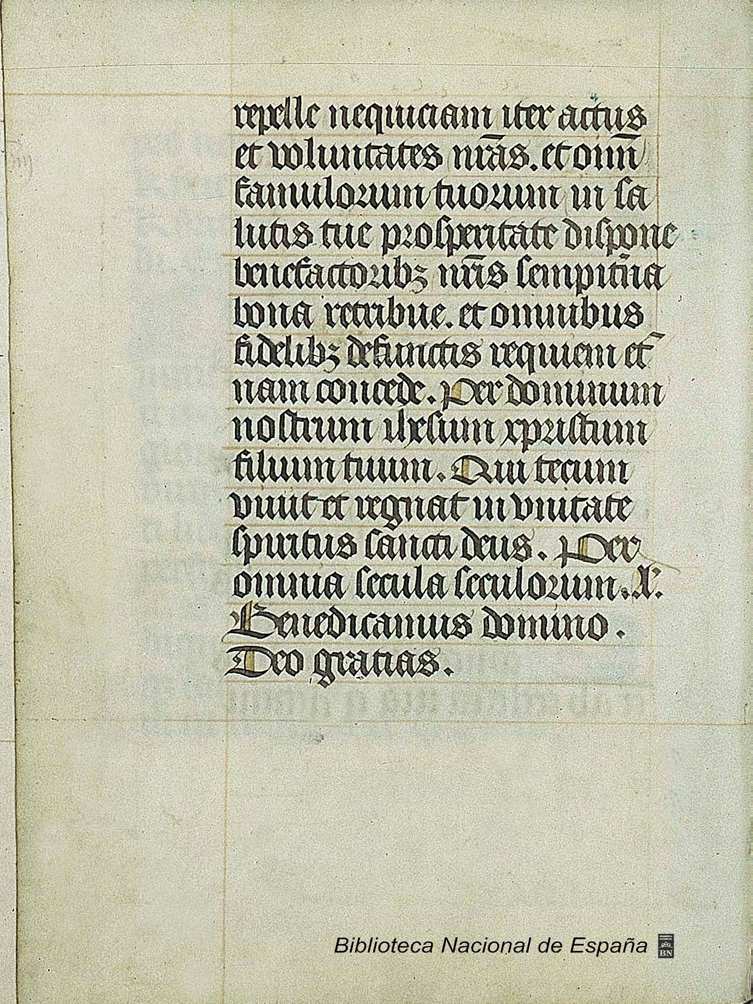 repelle nequiciam iter actus
et voluntates nr̄as. et om̄i
famulorum tuorum in sa
lutis tue prosperitate dispone
benefactoribꝫ nr̄is sempit̄na
bona retribue. et omnibus
fidelibꝫ defunctis requiem et̄
nam concede. Per dominum
nostrum ihesum xpristum
filium tuum. Qui tecum
viuit et regnat in vnitate
spiritus sancti deus. Per
omnia secula seculorum. A.
Benedicamus domino.
Deo gratias.
Biblioteca Nacional de España
BN